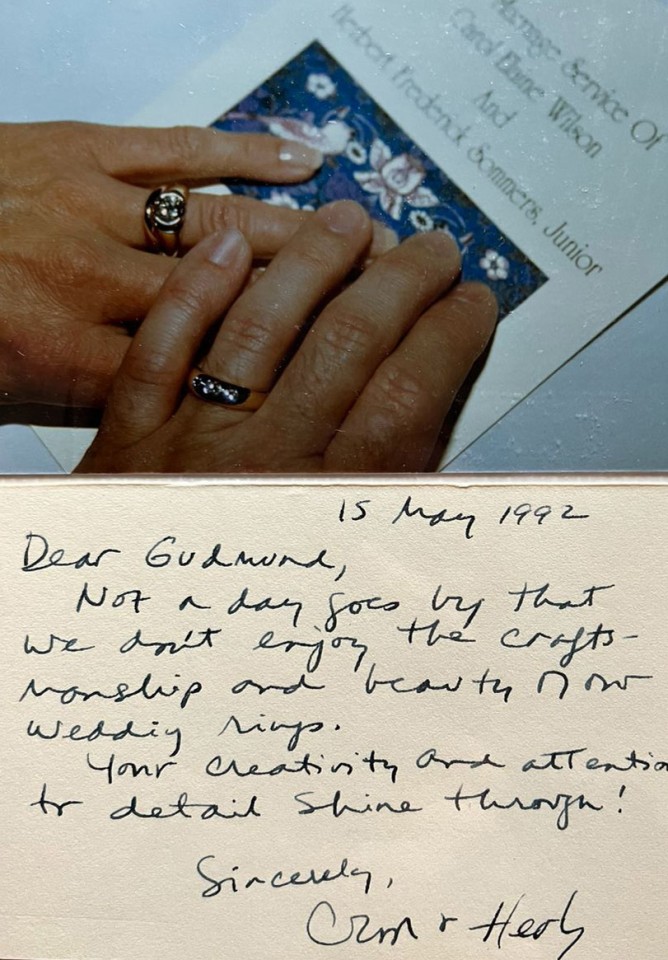 Marriage Service Of
Carol Elaine Wilson
And
Herbert Frederick Sommers, Junior
15 May 1992
Dear Gudmund,
Not a day goes by that
we don't enjoy the crafts-
manship and beauty of our
wedding rings.
Your creativity and attentio
to detail shine through!
Sincerely,
& Herb